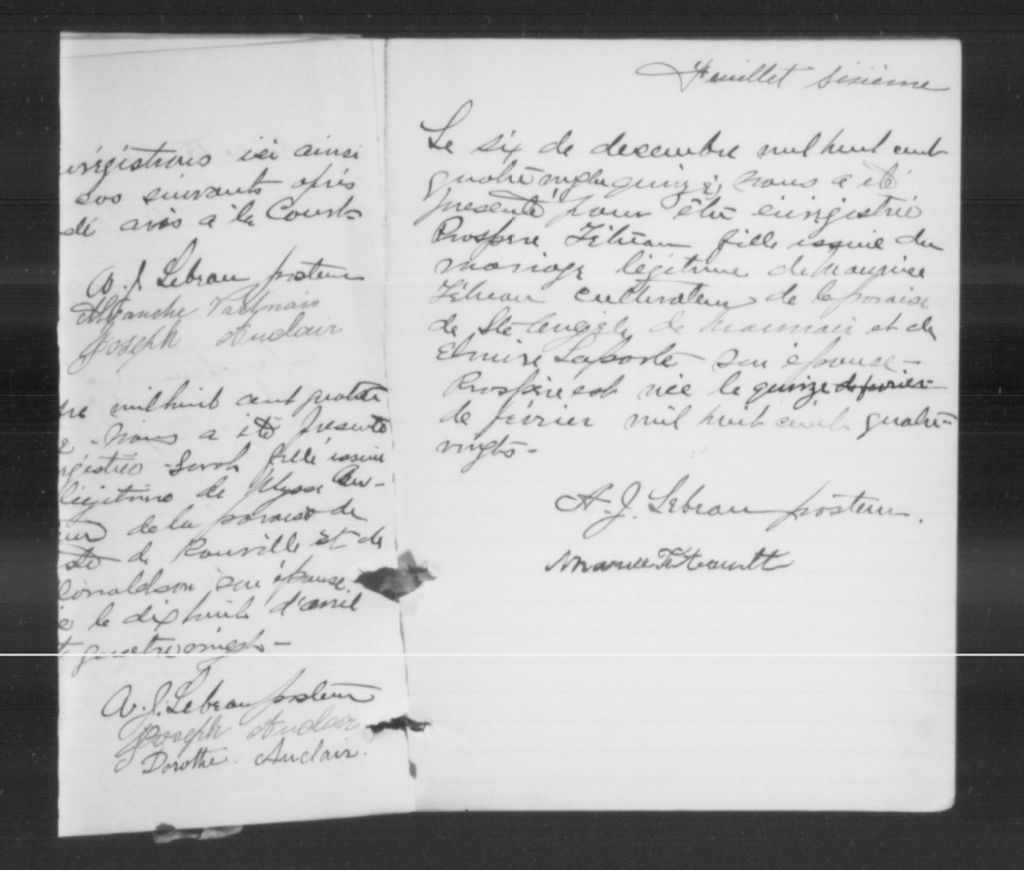 enrégistrons ici ainsi
cas suivants après
avis à la Court
A. J. Lebeau pasteur
Joseph Auclair
mil huit cent quatre
Nous a été présenté
Sarah fille issue
légitime de Ulysse Au-
de la paroisse de
de Rouville et de
Donaldson son épouse
le dix huit d'avril
quatre vingts -
A. J. Lebeau pasteur
Joseph Auclair
Dorothé. Auclair.
Feuillet sixième
Le six de decembre mil huit cent
quatre vingt quinze, nous a été
présenté pour être enrégistrée
Prospère fille issue du
mariage légitime de Maurice
cultivateur de la paroisse
de Ste Angèle de Monnoir et de
Elmire Laporte son épouse -
Prospère est née le quinze de février
de février mil huit cent quatre-
vingts -
A. J. Lebeau pasteur.